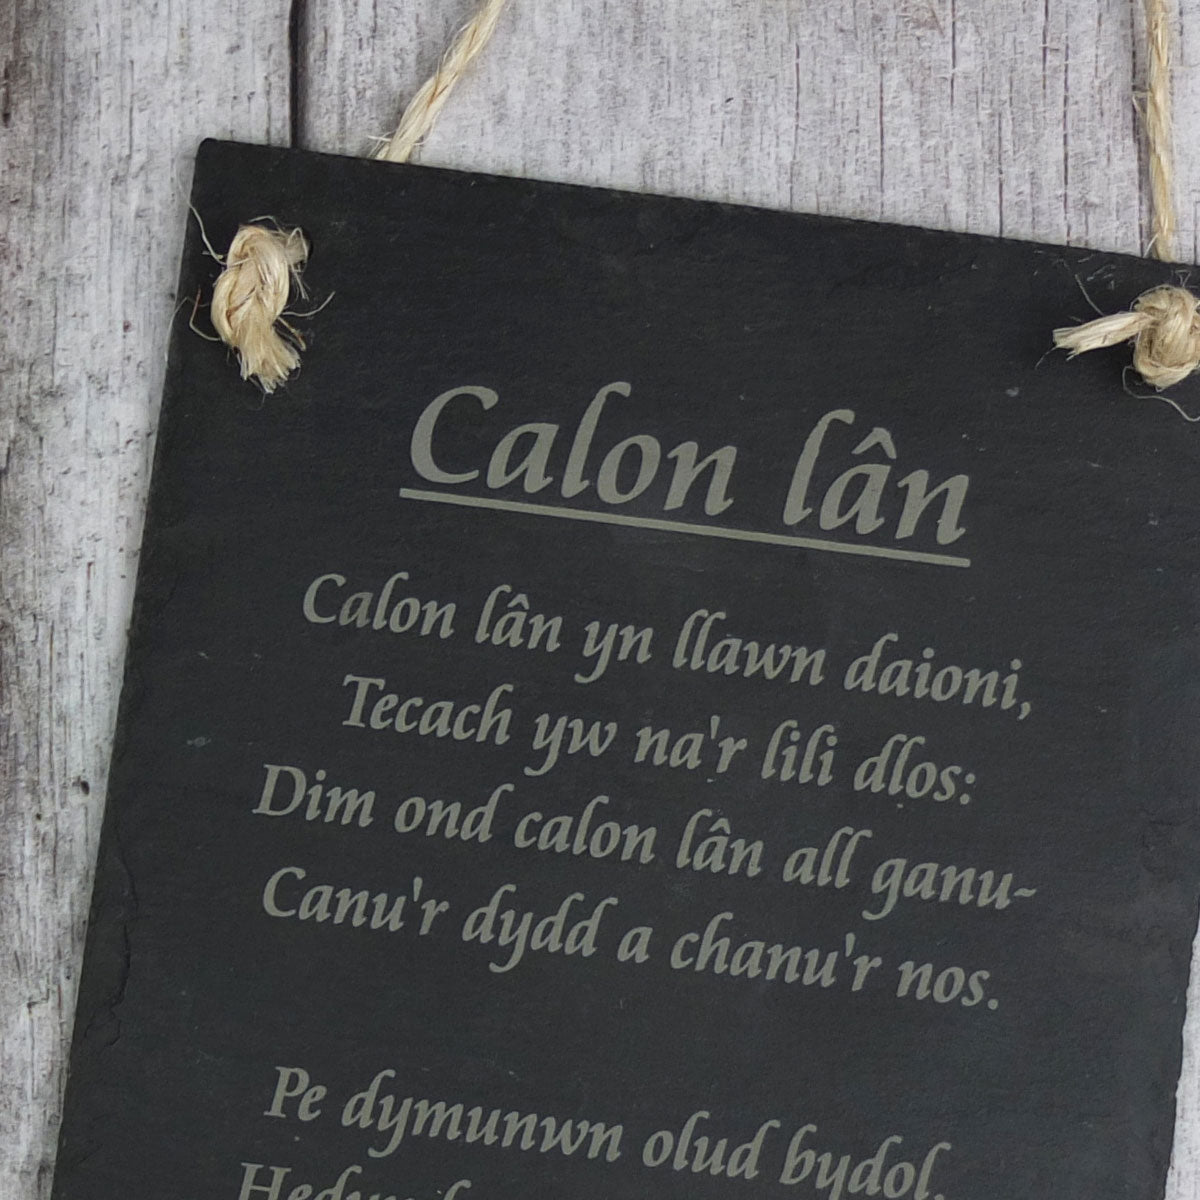 Calon lân
Calon lân yn llawn daioni,
Tecach yw na'r lili dlos:
Dim ond calon lân all ganu-
Canu'r dydd a chanu'r nos.
Pe dymunwn olud bydol,